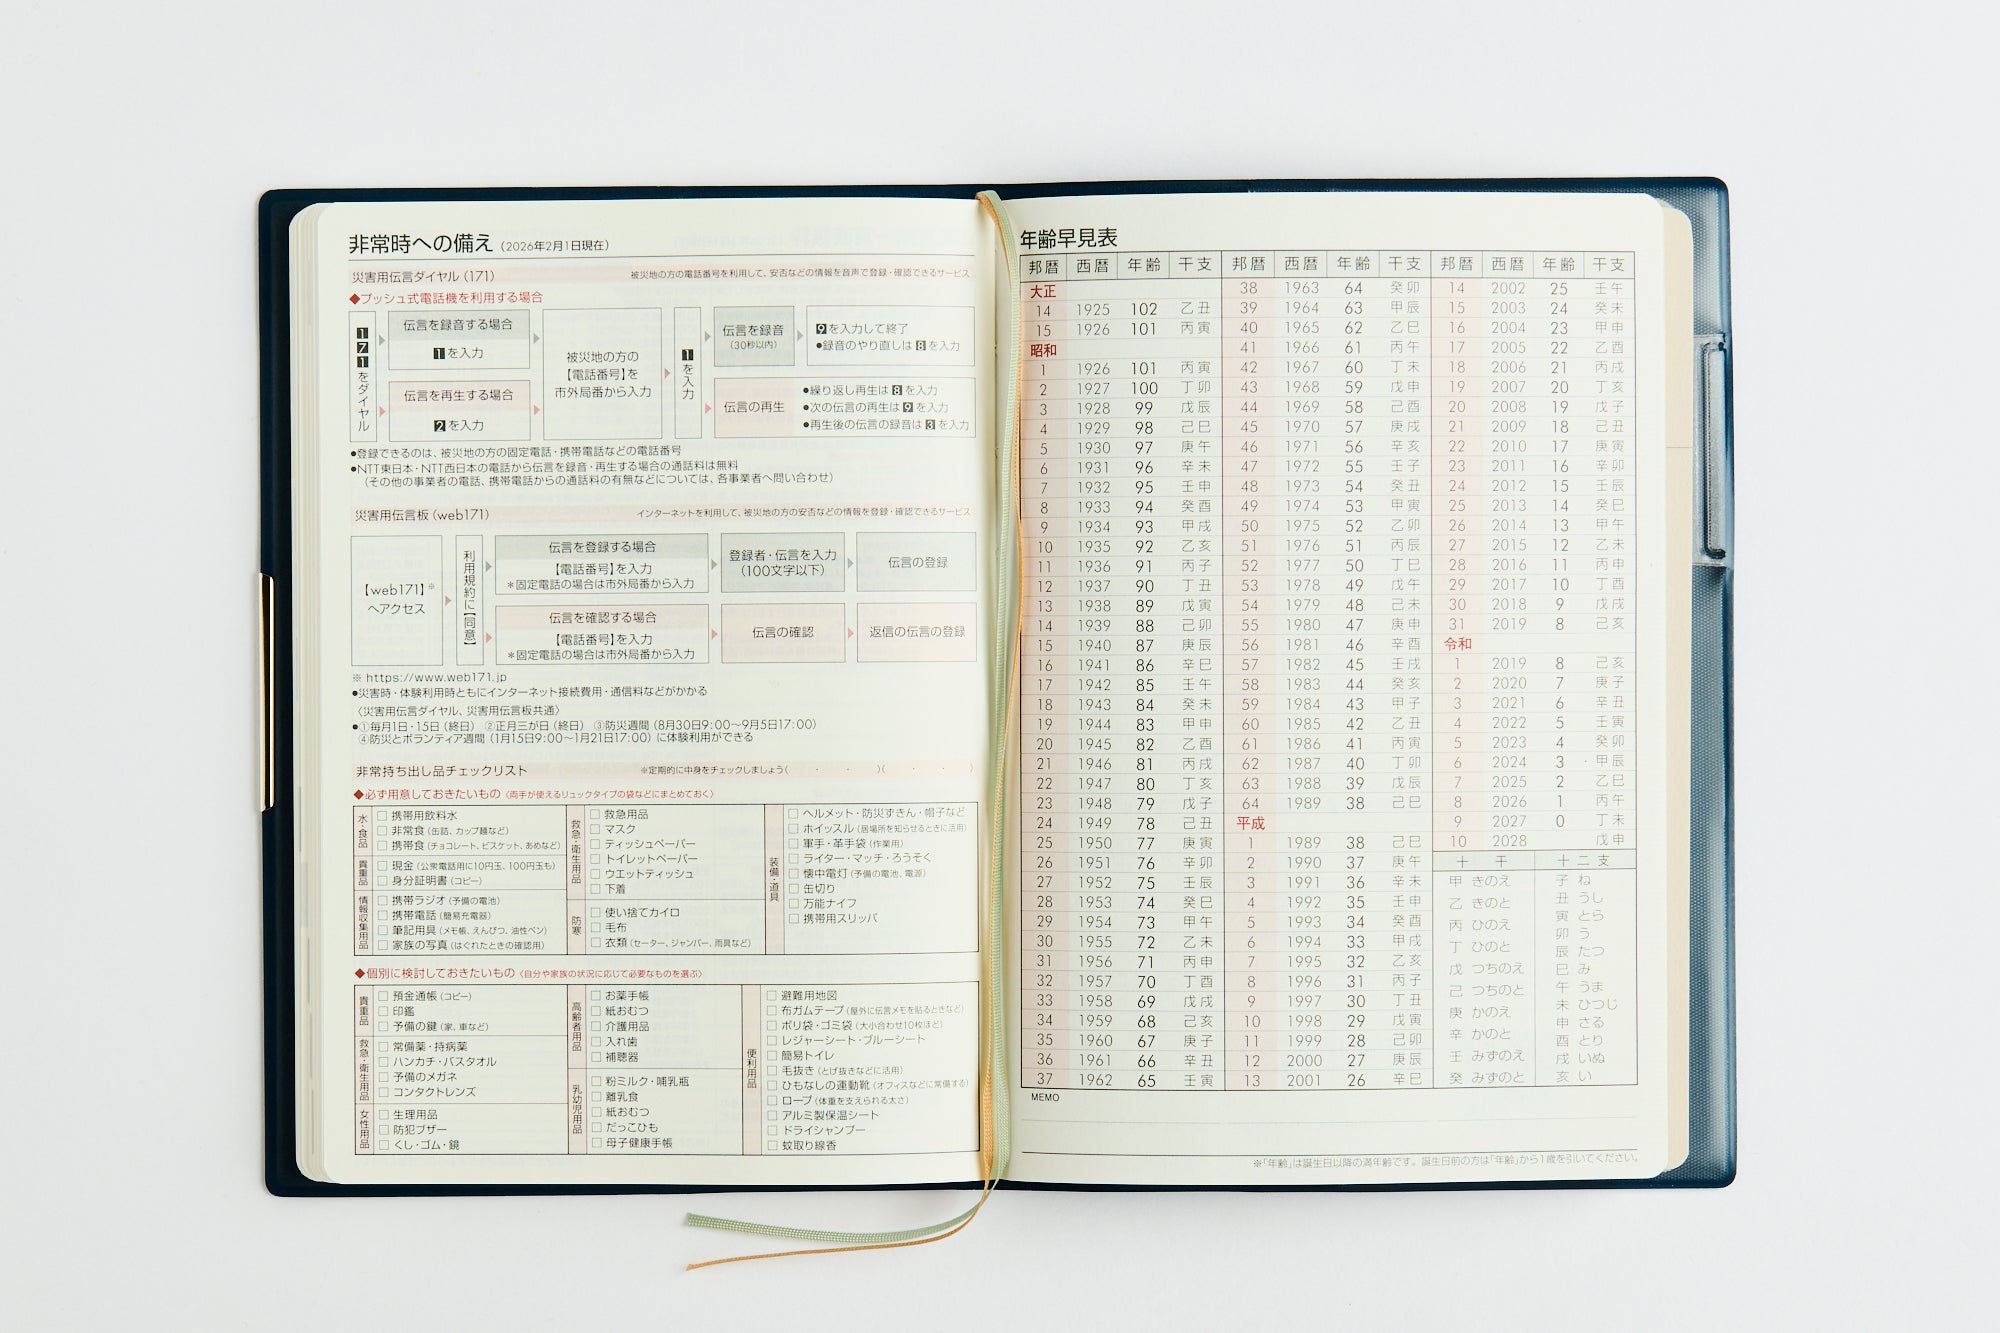 非常時への備え（2026年2月1日現在）
災害用伝言ダイヤル（171） 被災地の方の電話番号を利用して、安否などの情報を音声で登録・確認できるサービス
◆プッシュ式電話機を利用する場合
171をダイヤル
伝言を録音する場合
1を入力
伝言を再生する場合
2を入力
被災地の方の
【電話番号】を
市外局番から入力
1を入力
伝言を録音
（30秒以内）
9を入力して終了
●録音のやり直しは8を入力
伝言の再生
●繰り返し再生は8を入力
●次の伝言の再生は9を入力
●再生後の伝言の録音は3を入力
●登録できるのは、被災地の方の固定電話・携帯電話などの電話番号
●NTT東日本・NTT西日本の電話から伝言を録音・再生する場合の通話料は無料
（その他の事業者の電話、携帯電話からの通話料の有無などについては、各事業者へ問い合わせ）
災害用伝言板（web171） インターネットを利用して、被災地の方の安否などの情報を登録・確認できるサービス
【web171】※
へアクセス
利用規約に【同意】
伝言を登録する場合
【電話番号】を入力
＊固定電話の場合は市外局番から入力
登録者・伝言を入力
（100文字以下）
伝言の登録
伝言を確認する場合
【電話番号】を入力
＊固定電話の場合は市外局番から入力
伝言の確認
返信の伝言の登録
※ https://www.web171.jp
●災害時・体験利用時ともにインターネット接続費用・通信料などがかかる
〈災害用伝言ダイヤル、災害用伝言板共通〉
●①毎月1日・15日（終日） ②正月三が日（終日） ③防災週間（8月30日9：00〜9月5日17：00）
④防災とボランティア週間（1月15日9:00〜1月21日17:00）に体験利用ができる
非常持ち出し品チェックリスト ※定期的に中身をチェックしましょう（ ・ ・ ）（ ・ ・ ）
◆必ず用意しておきたいもの〈両手が使えるリュックタイプの袋などにまとめておく〉
水・食品
□ 携帯用飲料水
□ 非常食（缶詰、カップ麺など）
□ 携帯食（チョコレート、ビスケット、あめなど）
貴重品
□ 現金（公衆電話用に10円玉、100円玉も）
□ 身分証明書（コピー）
情報収集用品
□ 携帯ラジオ（予備の電池）
□ 携帯電話（簡易充電器）
□ 筆記用具（メモ帳、えんぴつ、油性ペン）
□ 家族の写真（はぐれたときの確認用）
救急・衛生用品
□ 救急用品
□ マスク
□ ティッシュペーパー
□ トイレットペーパー
□ ウエットティッシュ
□ 下着
防寒
□ 使い捨てカイロ
□ 毛布
□ 衣類（セーター、ジャンパー、雨具など）
装備・道具
□ ヘルメット・防災ずきん・帽子など
□ ホイッスル（居場所を知らせるときに活用）
□ 軍手・革手袋（作業用）
□ ライター・マッチ・ろうそく
□ 懐中電灯（予備の電池、電源）
□ 缶切り
□ 万能ナイフ
□ 携帯用スリッパ
◆個別に検討しておきたいもの〈自分や家族の状況に応じて必要なものを選ぶ〉
貴重品
□ 預金通帳（コピー）
□ 印鑑
□ 予備の鍵（家、車など）
救急・衛生用品
□ 常備薬・持病薬
□ ハンカチ・バスタオル
□ 予備のメガネ
□ コンタクトレンズ
女性用品
□ 生理用品
□ 防犯ブザー
□ くし・ゴム・鏡
高齢者用品
□ お薬手帳
□ 紙おむつ
□ 介護用品
□ 入れ歯
□ 補聴器
乳幼児用品
□ 粉ミルク・哺乳瓶
□ 離乳食
□ 紙おむつ
□ だっこひも
□ 母子健康手帳
便利用品
□ 避難用地図
□ 布ガムテープ（屋外に伝言メモを貼るときなど）
□ ポリ袋・ゴミ袋（大小合わせ10枚ほど）
□ レジャーシート・ブルーシート
□ 簡易トイレ
□ 毛抜き（とげ抜きなどに活用）
□ ひもなしの運動靴（オフィスなどに常備する）
□ ロープ（体重を支えられる太さ）
□ アルミ製保温シート
□ ドライシャンプー
□ 蚊取り線香
年齢早見表
邦暦 西暦 年齢 干支
大正
14 1925 102 乙丑
15 1926 101 丙寅
昭和
1 1926 101 丙寅
2 1927 100 丁卯
3 1928 99 戊辰
4 1929 98 己巳
5 1930 97 庚午
6 1931 96 辛未
7 1932 95 壬申
8 1933 94 癸酉
9 1934 93 甲戌
10 1935 92 乙亥
11 1936 91 丙子
12 1937 90 丁丑
13 1938 89 戊寅
14 1939 88 己卯
15 1940 87 庚辰
16 1941 86 辛巳
17 1942 85 壬午
18 1943 84 癸未
19 1944 83 甲申
20 1945 82 乙酉
21 1946 81 丙戌
22 1947 80 丁亥
23 1948 79 戊子
24 1949 78 己丑
25 1950 77 庚寅
26 1951 76 辛卯
27 1952 75 壬辰
28 1953 74 癸巳
29 1954 73 甲午
30 1955 72 乙未
31 1956 71 丙申
32 1957 70 丁酉
33 1958 69 戊戌
34 1959 68 己亥
35 1960 67 庚子
36 1961 66 辛丑
37 1962 65 壬寅
邦暦 西暦 年齢 干支
38 1963 64 癸卯
39 1964 63 甲辰
40 1965 62 乙巳
41 1966 61 丙午
42 1967 60 丁未
43 1968 59 戊申
44 1969 58 己酉
45 1970 57 庚戌
46 1971 56 辛亥
47 1972 55 壬子
48 1973 54 癸丑
49 1974 53 甲寅
50 1975 52 乙卯
51 1976 51 丙辰
52 1977 50 丁巳
53 1978 49 戊午
54 1979 48 己未
55 1980 47 庚申
56 1981 46 辛酉
57 1982 45 壬戌
58 1983 44 癸亥
59 1984 43 甲子
60 1985 42 乙丑
61 1986 41 丙寅
62 1987 40 丁卯
63 1988 39 戊辰
64 1989 38 己巳
平成
1 1989 38 己巳
2 1990 37 庚午
3 1991 36 辛未
4 1992 35 壬申
5 1993 34 癸酉
6 1994 33 甲戌
7 1995 32 乙亥
8 1996 31 丙子
9 1997 30 丁丑
10 1998 29 戊寅
11 1999 28 己卯
12 2000 27 庚辰
13 2001 26 辛巳
邦暦 西暦 年齢 干支
14 2002 25 壬午
15 2003 24 癸未
16 2004 23 甲申
17 2005 22 乙酉
18 2006 21 丙戌
19 2007 20 丁亥
20 2008 19 戊子
21 2009 18 己丑
22 2010 17 庚寅
23 2011 16 辛卯
24 2012 15 壬辰
25 2013 14 癸巳
26 2014 13 甲午
27 2015 12 乙未
28 2016 11 丙申
29 2017 10 丁酉
30 2018 9 戊戌
31 2019 8 己亥
令和
1 2019 8 己亥
2 2020 7 庚子
3 2021 6 辛丑
4 2022 5 壬寅
5 2023 4 癸卯
6 2024 3 甲辰
7 2025 2 乙巳
8 2026 1 丙午
9 2027 0 丁未
10 2028 戊申
十干
甲 きのえ
乙 きのと
丙 ひのえ
丁 ひのと
戊 つちのえ
己 つちのと
庚 かのえ
辛 かのと
壬 みずのえ
癸 みずのと
十二支
子 ね
丑 うし
寅 とら
卯 う
辰 たつ
巳 み
午 うま
未 ひつじ
申 さる
酉 とり
戌 いぬ
亥 い
MEMO
※「年齢」は誕生日以降の満年齢です。誕生日前の方は「年齢」から1歳を引いてください。